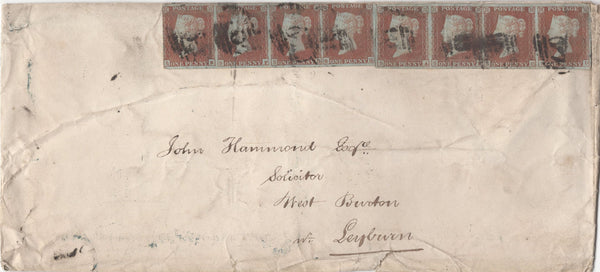 POSTAGE POSTAGE POSTAGE POSTAGE POSTAGE POSTAGE POSTAGE POSTAGE
ONE PENNY ONE PENNY ONE PENNY ONE PENNY ONE PENNY ONE PENNY ONE PENNY ONE PENNY
John Hammond Esqre
Solicitor
West Burton
Leyburn